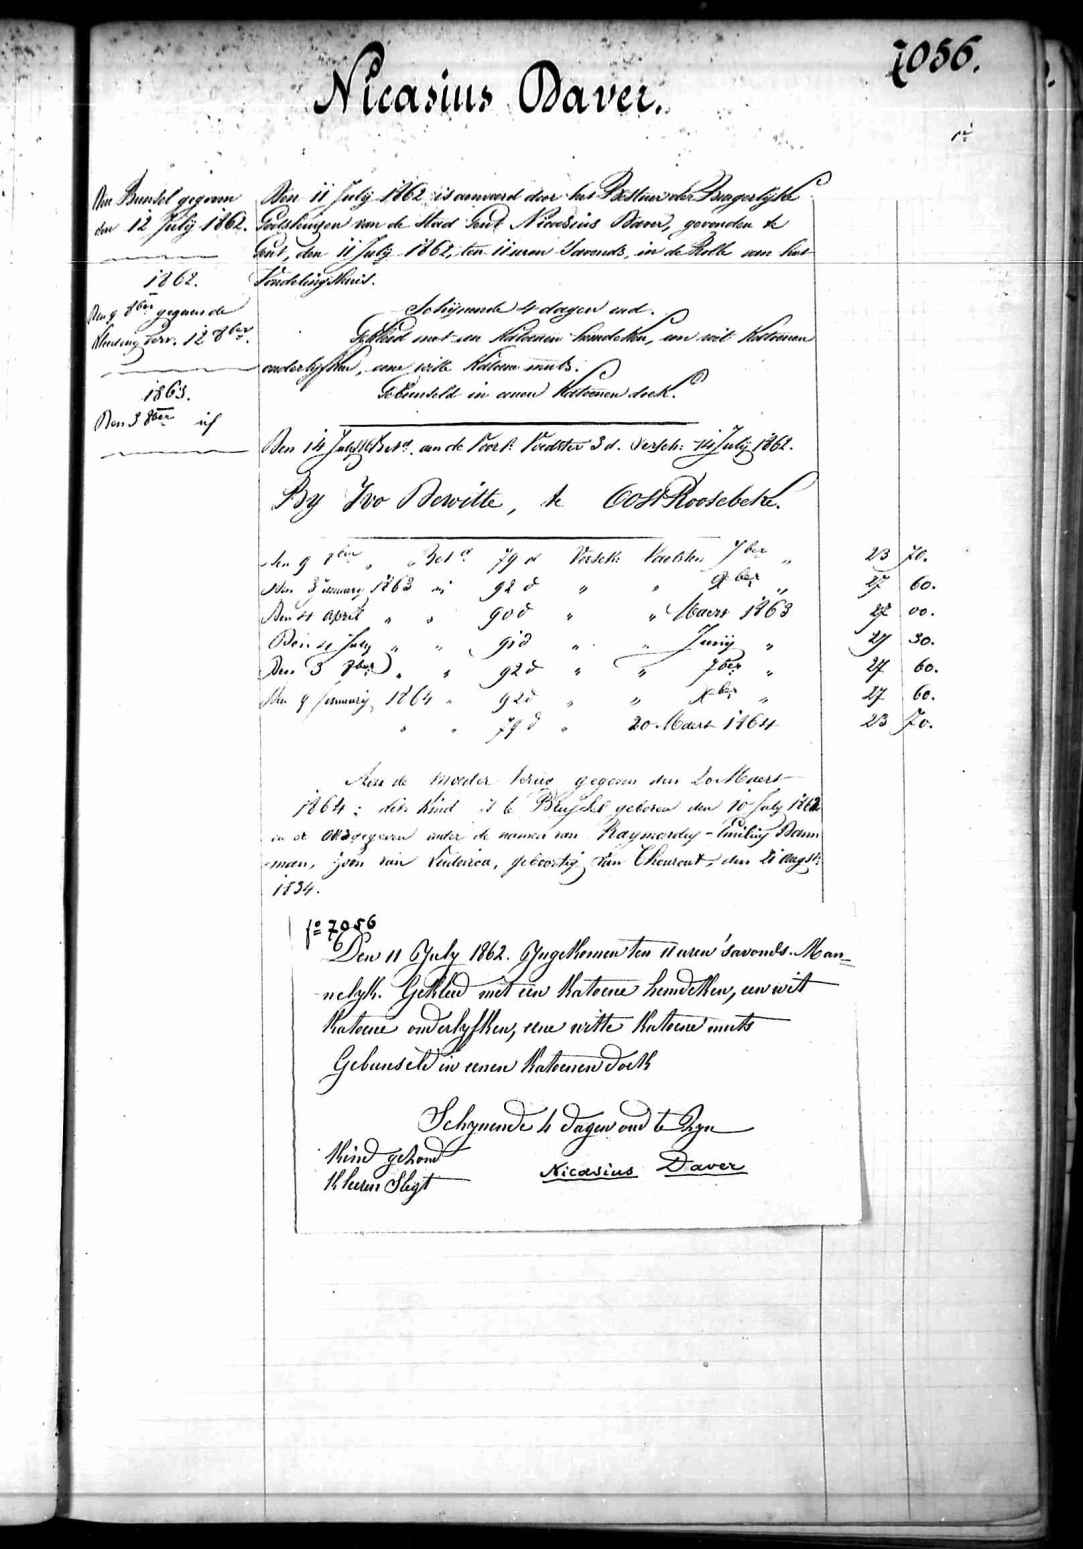 7056.
Nicasius Daver.
Een Bunsel gegeven
den 12 July 1862.
1862.
Den 9 8ber gegeven de
kleeding verv. 12 8ber.
1863.
Den 3 8ber id
Den 11 July 1862 is aenveerd door het Bestuur der Burgerlyke
Godshuizen van de Stad Gent Nicasius Daver, gevonden te
Gent, den 11 July 1862, ten 11 uren Savonds, in de Rolle van het
Vondelinghuis.
Schynende 4 dagen oud.
Gekleed met een Katoenen hemdeken, een wit Katoenen
onderlyfken, eene witte Katoene muts.
Gebunseld in eenen Katoenen doek.
Den 14 July Bet. aen de Voorz. Voedster 3 d. Versch: 14 July 1862.
By Ivo Dewitte, te OostRoosebeke.
den 9 8ber " Betd 79 d Versch: 7ber " 23 70.
Den 3 January 1863 id 92 d " " Xber " 27 60.
Den 4 April " " 90 d " " Maert 1863 27 00.
Den 4 July " " 91 d " " Juny " 27 30.
Den 3 8ber " " 92 d " " 7ber " 27 60.
Den 9 January 1864 " 92 d " " Xber " 27 60.
" " 79 d " 20 Maert 1864 23 70.
Aen de moeder terug gegeven den 20 Maert
1864: dit Kind is te geboren den 10 July 1862
en er aengegeven onder de namen van Raymondus-Emilius
man, zoon van Ludovica, geboortig van Thourout, den 21 augst:
1834.
fo 7056
Den 11 July 1862. Ingekomen ten 11 uren 'savonds. Man-
nelyk. Gekleed met een Katoene hemdeken, een wit
Katoene onderlyfken, eene witte Katoene muts
Gebunseld in eenen Katoenen doek
Schynende 4 dagen oud te Zyn
Kind gezond
Kleeren Slegt
Nicasius Daver